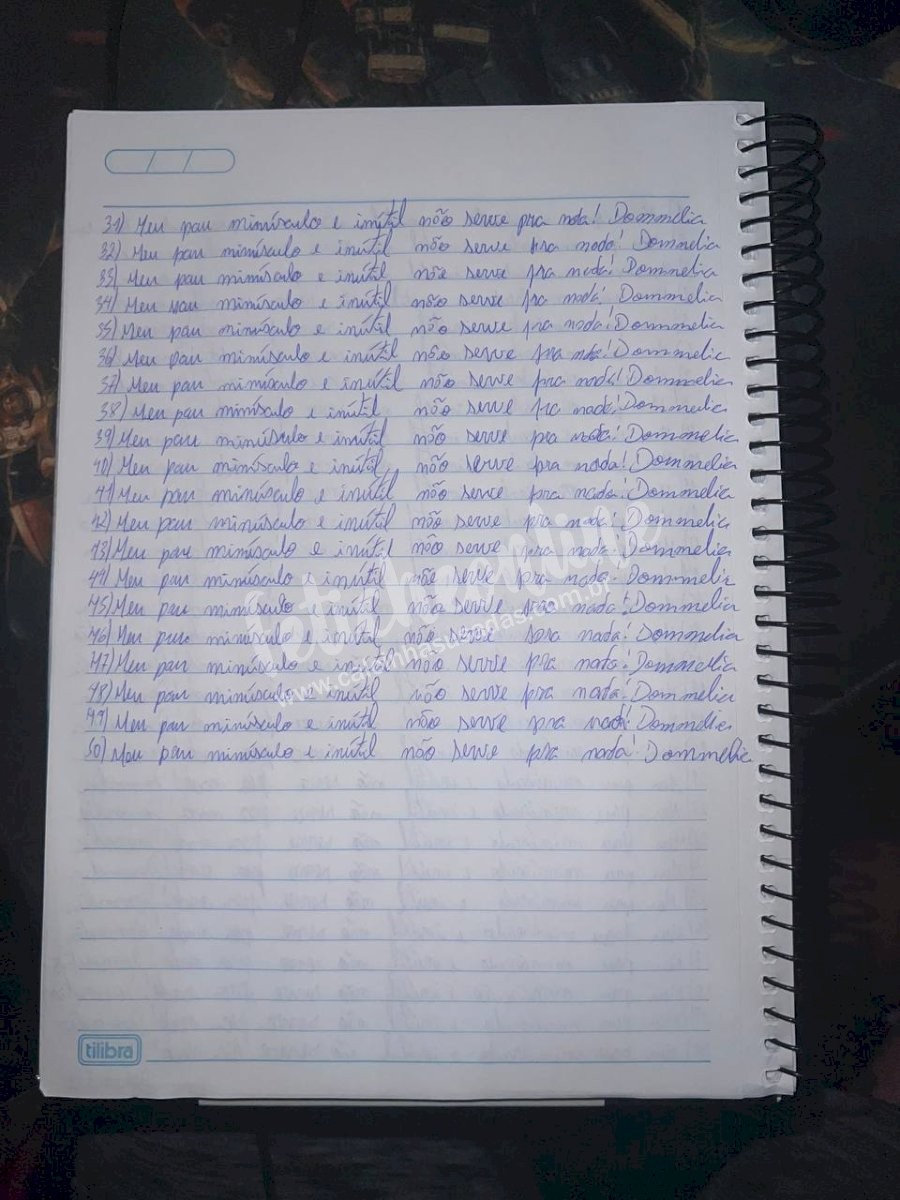 31) Meu pau minúsculo e inútil não serve pra nada! Dommelia
32) Meu pau minúsculo e inútil não serve pra nada! Dommelia
33) Meu pau minúsculo e inútil não serve pra nada! Dommelia
34) Meu pau minúsculo e inútil não serve pra nada! Dommelia
35) Meu pau minúsculo e inútil não serve pra nada! Dommelia
36) Meu pau minúsculo e inútil não serve pra nada! Dommelia
37) Meu pau minúsculo e inútil não serve pra nada! Dommelia
38) Meu pau minúsculo e inútil não serve pra nada! Dommelia
39) Meu pau minúsculo e inútil não serve pra nada! Dommelia
40) Meu pau minúsculo e inútil não serve pra nada! Dommelia
41) Meu pau minúsculo e inútil não serve pra nada! Dommelia
42) Meu pau minúsculo e inútil não serve pra nada! Dommelia
43) Meu pau minúsculo e inútil não serve pra nada! Dommelia
44) Meu pau minúsculo e inútil não serve pra nada! Dommelia
45) Meu pau minúsculo e inútil não serve pra nada! Dommelia
46) Meu pau minúsculo e inútil não serve pra nada! Dommelia
47) Meu pau minúsculo e inútil não serve pra nada! Dommelia
48) Meu pau minúsculo e inútil não serve pra nada! Dommelia
49) Meu pau minúsculo e inútil não serve pra nada! Dommelia
50) Meu pau minúsculo e inútil não serve pra nada! Dommelia
tilibra